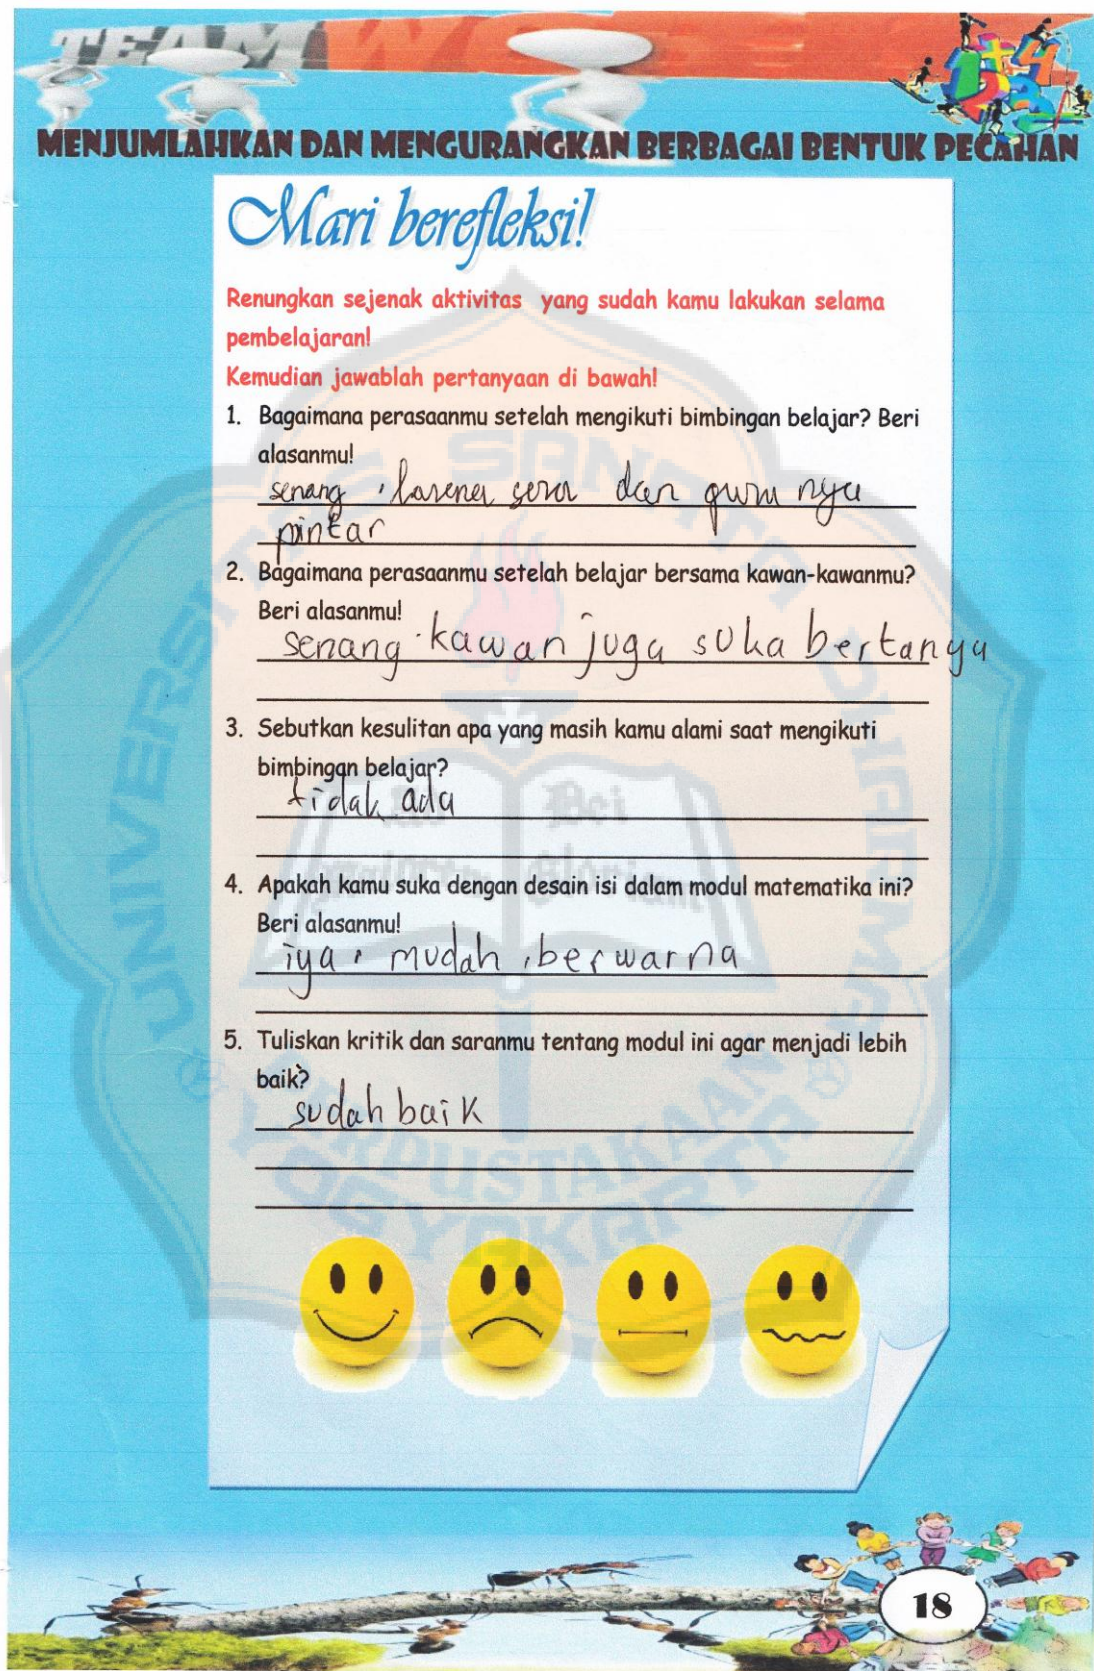 TEAMWORK
MENJUMLAHKAN DAN MENGURANGKAN BERBAGAI BENTUK PECAHAN
Mari berefleksi!
Renungkan sejenak aktivitas yang sudah kamu lakukan selama
pembelajaran!
Kemudian jawablah pertanyaan di bawah!
1. Bagaimana perasaanmu setelah mengikuti bimbingan belajar? Beri
alasanmu!
senang, karena seru dan guru nya
pintar
2. Bagaimana perasaanmu setelah belajar bersama kawan-kawanmu?
Beri alasanmu!
senang. kawan juga suka bertanya
3. Sebutkan kesulitan apa yang masih kamu alami saat mengikuti
bimbingan belajar?
tidak ada
4. Apakah kamu suka dengan desain isi dalam modul matematika ini?
Beri alasanmu!
iya, mudah, berwarna
5. Tuliskan kritik dan saranmu tentang modul ini agar menjadi lebih
baik?
sudah baik
UNIVERSITAS SANATA DHARMA
PERPUSTAKAAN
YOGYAKARTA
18